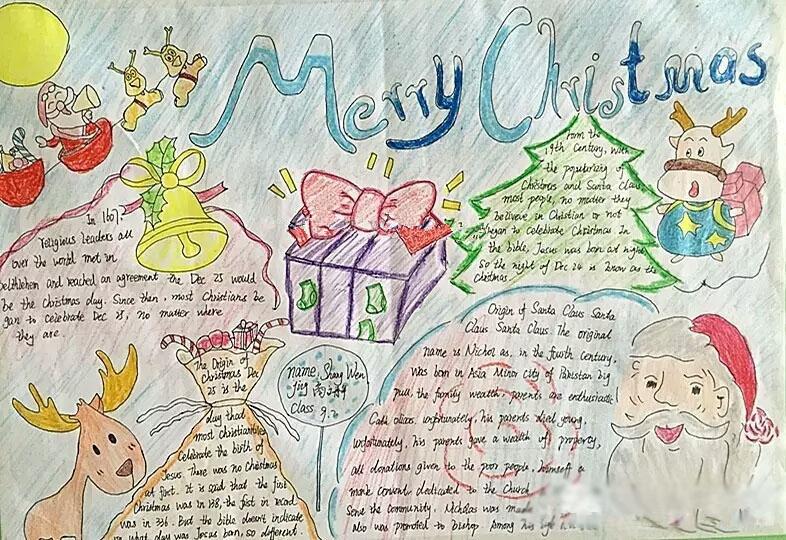 Merry Christmas
In 1607,
religious leaders all
over the world met in
belthlehem and reached an agreement the Dec 25 would
be the Christmas day. Since then, most Christians be
gan to celebrate Dec 25, no matter where
they are.
From the
19th Century, with
the popularizing of
Christmas and Santa Claus
most people, no matter they
believe in Christian or not
began to celebrate Christmas In
the bible, Jesus was born at night
So the night of Dec 24 is know as the
Christmas.
The Origin of
Christmas Dec
25 is the
day that
most Christianties
Celebrate the birth of
Jesus. There was no Christmas
at first. It is said that the first
Christmas was in 138, the first in recad
was in 336. But the bible doesn't indicate
what day was Jesus born, so different.
name Shang Wen
Jing
Class 9.2
Origin of Santa Claus Santa
Claus Santa Claus. The original
name is Nichol as. in the fourth Century,
was born in Asia Minor city of Pakistan big
pull, the family wealth. parents are enthusiastic
Cath olics. unfortunately, his parents died young.
Unfortunately, his parents gave a wealth of property,
all donations given to the poor people, himself a
monk convent, dedicated to the Church
Serve the community. Nicholas was made
also was promoted to bishop. Among his